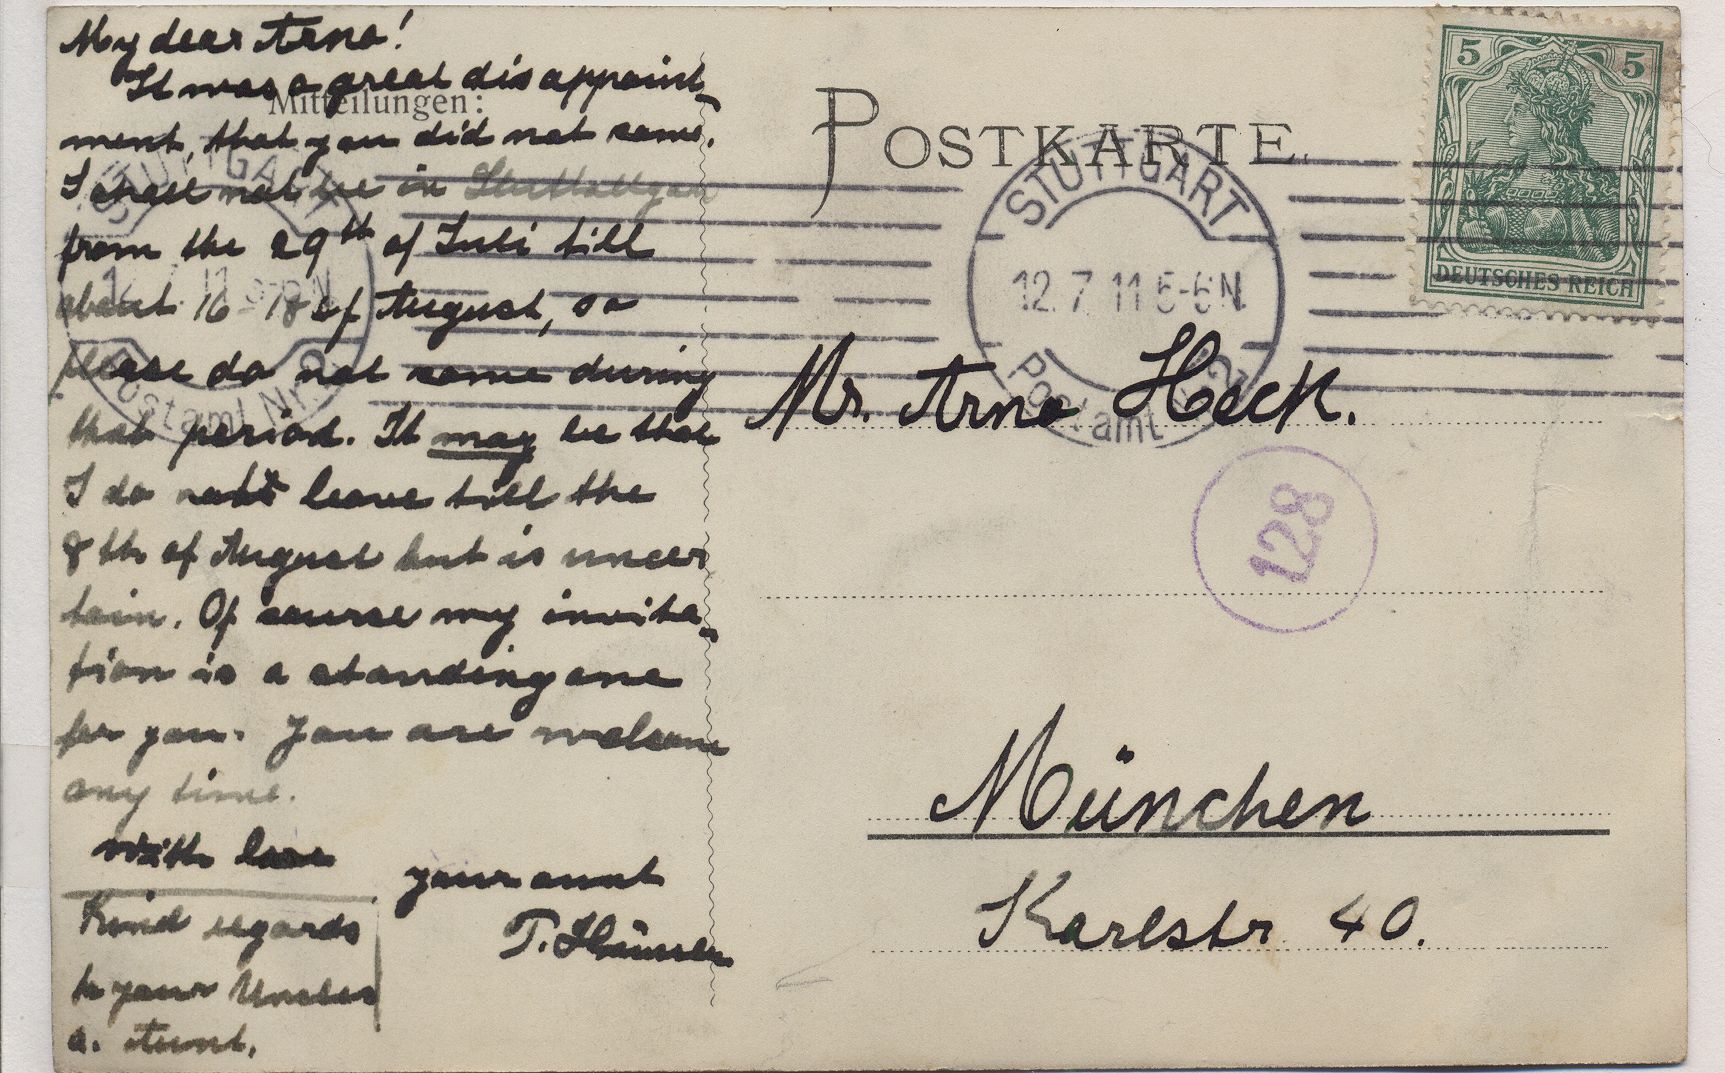 My dear Arno!
Mitteilungen:
It was a great disappoint-
ment, that you did not come.
I shall not be in
from the 29th of Juli till
about 16-18 of August, so
please do not come during
that period. It may be that
I do not leave till the
8th of August but is uncer
tain. Of course my invita-
tion is a standing one
for you. You are welcome
any time.
with love
your aunt
T.
Kind regards
to your Uncles
a. Aunt.
POSTKARTE.
5 5
DEUTSCHES REICH
STUTTGART
12.7.11 5-6N.
Postamt
STUTTGART
Postamt Nr.
Mr. Arno Heck.
128
München
Karlstr 40.